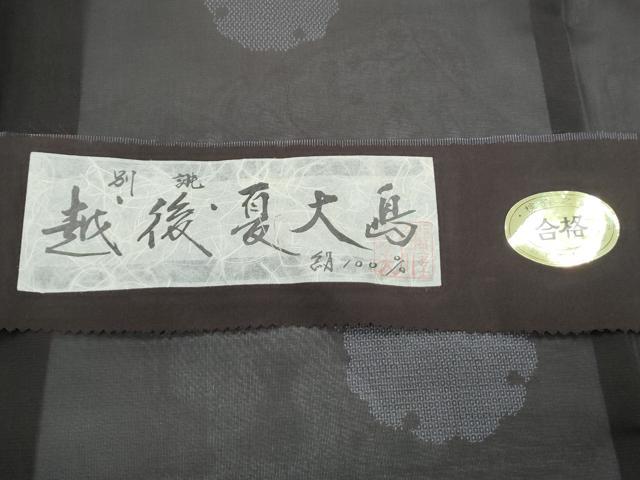 別誂
越後夏大島
絹100%
合格